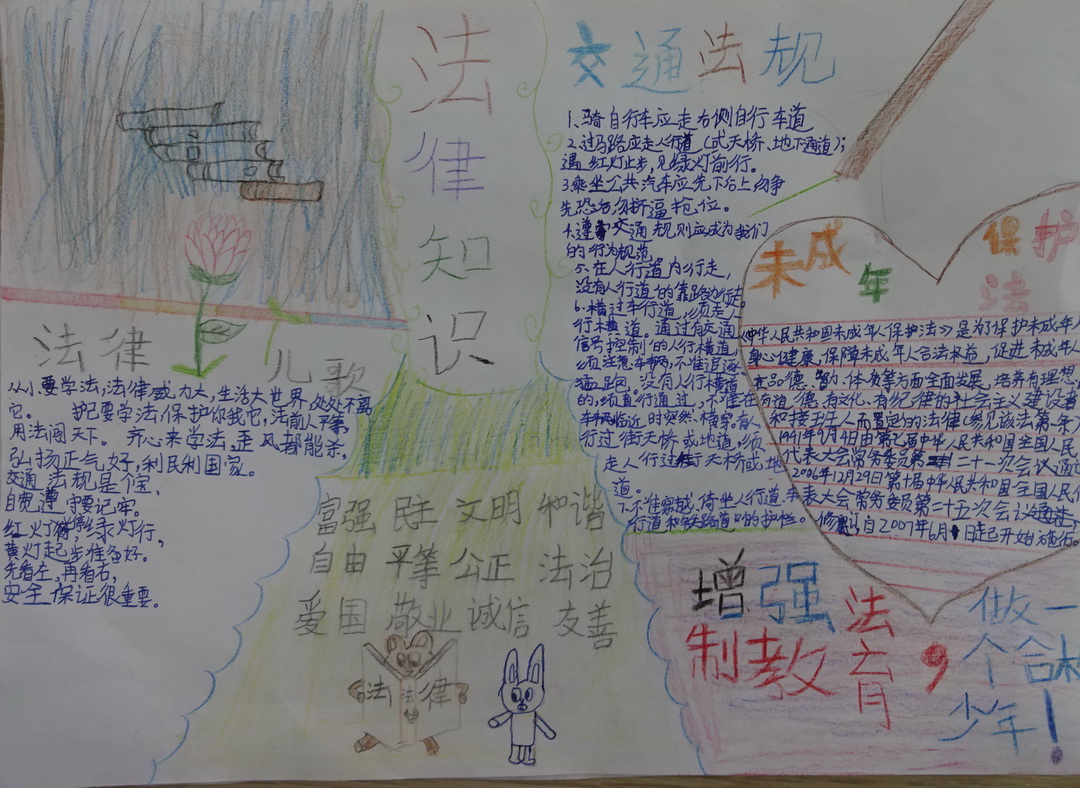 法律知识
法律
儿歌
从小要学法,法律威力大,生活大世界,处处不离
它。 护己要学法,保护你我它,法前人平等,
用法闯天下。 齐心来学法,歪风都能杀,
弘扬正气好,利民利国家。
交通法规是个宝,
自觉遵守要记牢。
红灯停绿灯行,
黄灯起步准备好。
先看左,再看右,
安全保证很重要。
交通法规
1、骑自行车应走右侧自行车道
2.过马路应走人行道(或天桥、地下通道);
遇红灯止步,见绿灯前行。
3乘坐公共汽车应先下后上勿争
先恐后勿挤逼抢位。
4.遵守交通规则应成为我们
的行为规范
5.在人行道内行走,
没有人行道的靠路边行走。
6.横过车行道,须走人
行横道。通过有交通
信号控制的人行横道,
须注意车辆,不准追逐
猛跑。没有人行横道
的,须直行通过,不准在
车辆临近时突然横穿。有人
行过街天桥或地道,须
走人行过街天桥或地
道。
7.不准穿越、倚坐人行道,车
行道和铁路道口的护栏。
未成年保护法
《中华人民共和国未成年人保护法》是为了保护未成年人
身心健康,保障未成年人合法权益,促进未成年人
在品德、智力、体质等方面全面发展,培养有理想,
有道德、有文化、有纪律的社会主义建设者
和接班人而置定的法律(参见该法第一条)
1991年9月4日由第七届中华人民共和国全国人民
代表大会常务委员第二十一次会议通过
2006年12月29日第十届中华人民共和国全国人民代
表大会常务委员第二十五次会议通过,
修订自2007年6月1日起开始施行。
富强 民主 文明 和谐
自由 平等 公正 法治
爱国 敬业 诚信 友善
法 法律 律
增强法
制教育,
做一
个合格
少年!